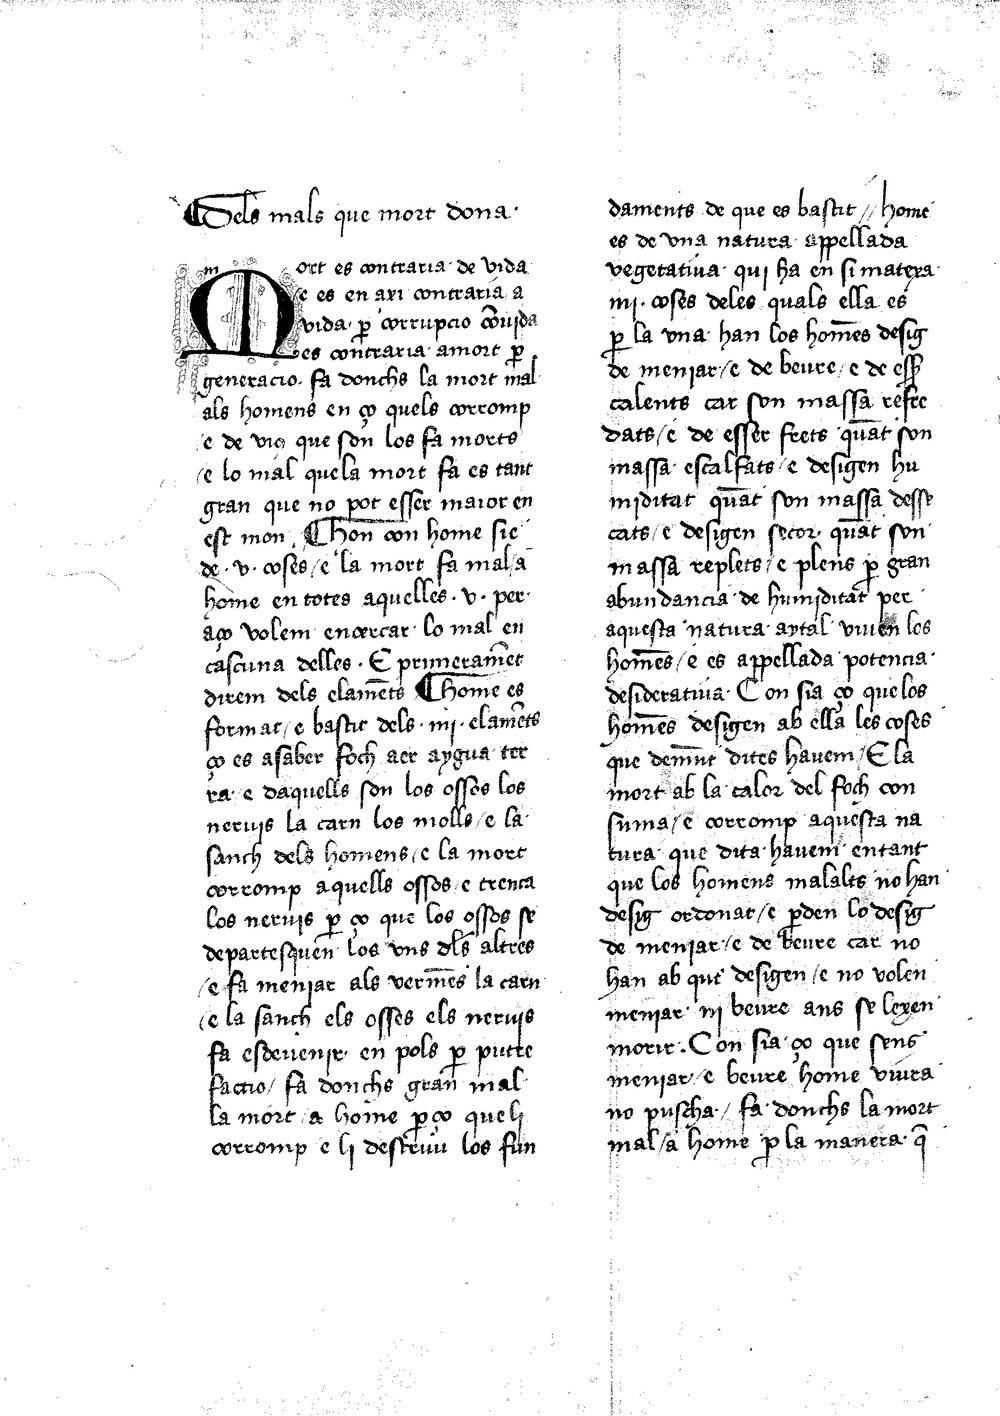 ¶ Dels mals que mort dona·
Mort es contraria· de vida
/e es en axi contraria a
vida· ꝑ corrupcio cõ vida
es contraria amort ꝑ
generacio· fa donchs la mort mal
als homens en ço quels corromp
/e de viu que son los fa morts
/e lo mal quela mort fa es tant
gran que no pot esser maior en
est mon / ¶ Hon con home sie
de· v· coses /e la mort fa mal /a
home en totes aquelles· v· per·
aço volem encercar lo mal en
cascuna delles· E primeramẽt
direm dels elamẽts ¶ home es
format /e bastit dels· iiij· elamẽts
ço es asaber foch aer aygua ter
ra· e daquells son los ossos los
neruis la carn los molls /e la
sanch dels homens /e la mort
corromp aquells ossos /e trenca
los neruis ꝑ ço que los ossos se
departesquen los vns dls altres
/e fa meniar als vermẽs la carn
/e la sanch els osses els neruis
fa esdeuenir· en pols ꝑ putre
factio / fa donchs gran mal
la mort /a home ꝑço que li
corromp e li destruu los fun
daments de que es bastit // home
es de vna natura appellada
vegetatiua· qui ha en si matexa
iiij· coses deles quals ella es
ꝑ la vna han los homẽs desig
de meniar /e de beure /e de esser
calents car son massa refre
dats /e de esser frets quãt son
massa escalfats /e desigen hu
miditat quãt son massa desse
cats /e desigen secor quãt son
massa replets /e plens ꝑ gran
abundancia de humiditat per
aquesta natura aytal viuen los
homẽs /e es appellada potencia
desideratiua· Con sia ço que los
homẽs desigen ab ella les coses
que demũt dites hauem / E la
mort ab la calor del foch con
suma /e corromp aquesta na
tura que dita hauem entant
que los homens malalts no han
desig ordonat /e ꝑden lo desig
de meniar /e de beure car no
han ab que desigen /e no volen
meniar ni beure ans se lexen
morir· Con sia ço que sens
meniar /e beure home viure
no puscha· / fa donchs la mort
mal /a home ꝑ la manera· q̃